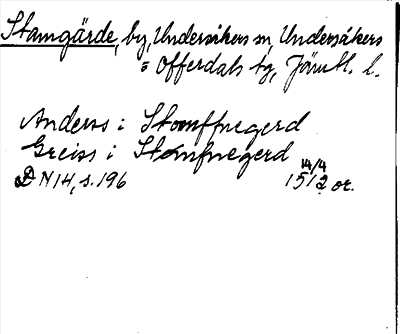 Stamgärde, by, Undersåkers sn, Undersåkers
= Offerdals tg, Jämtl. l.
Anderss i Stomffnegerd
Greiss i Stomfnegerd
DN 14, s. 196 14/4 1512 or.